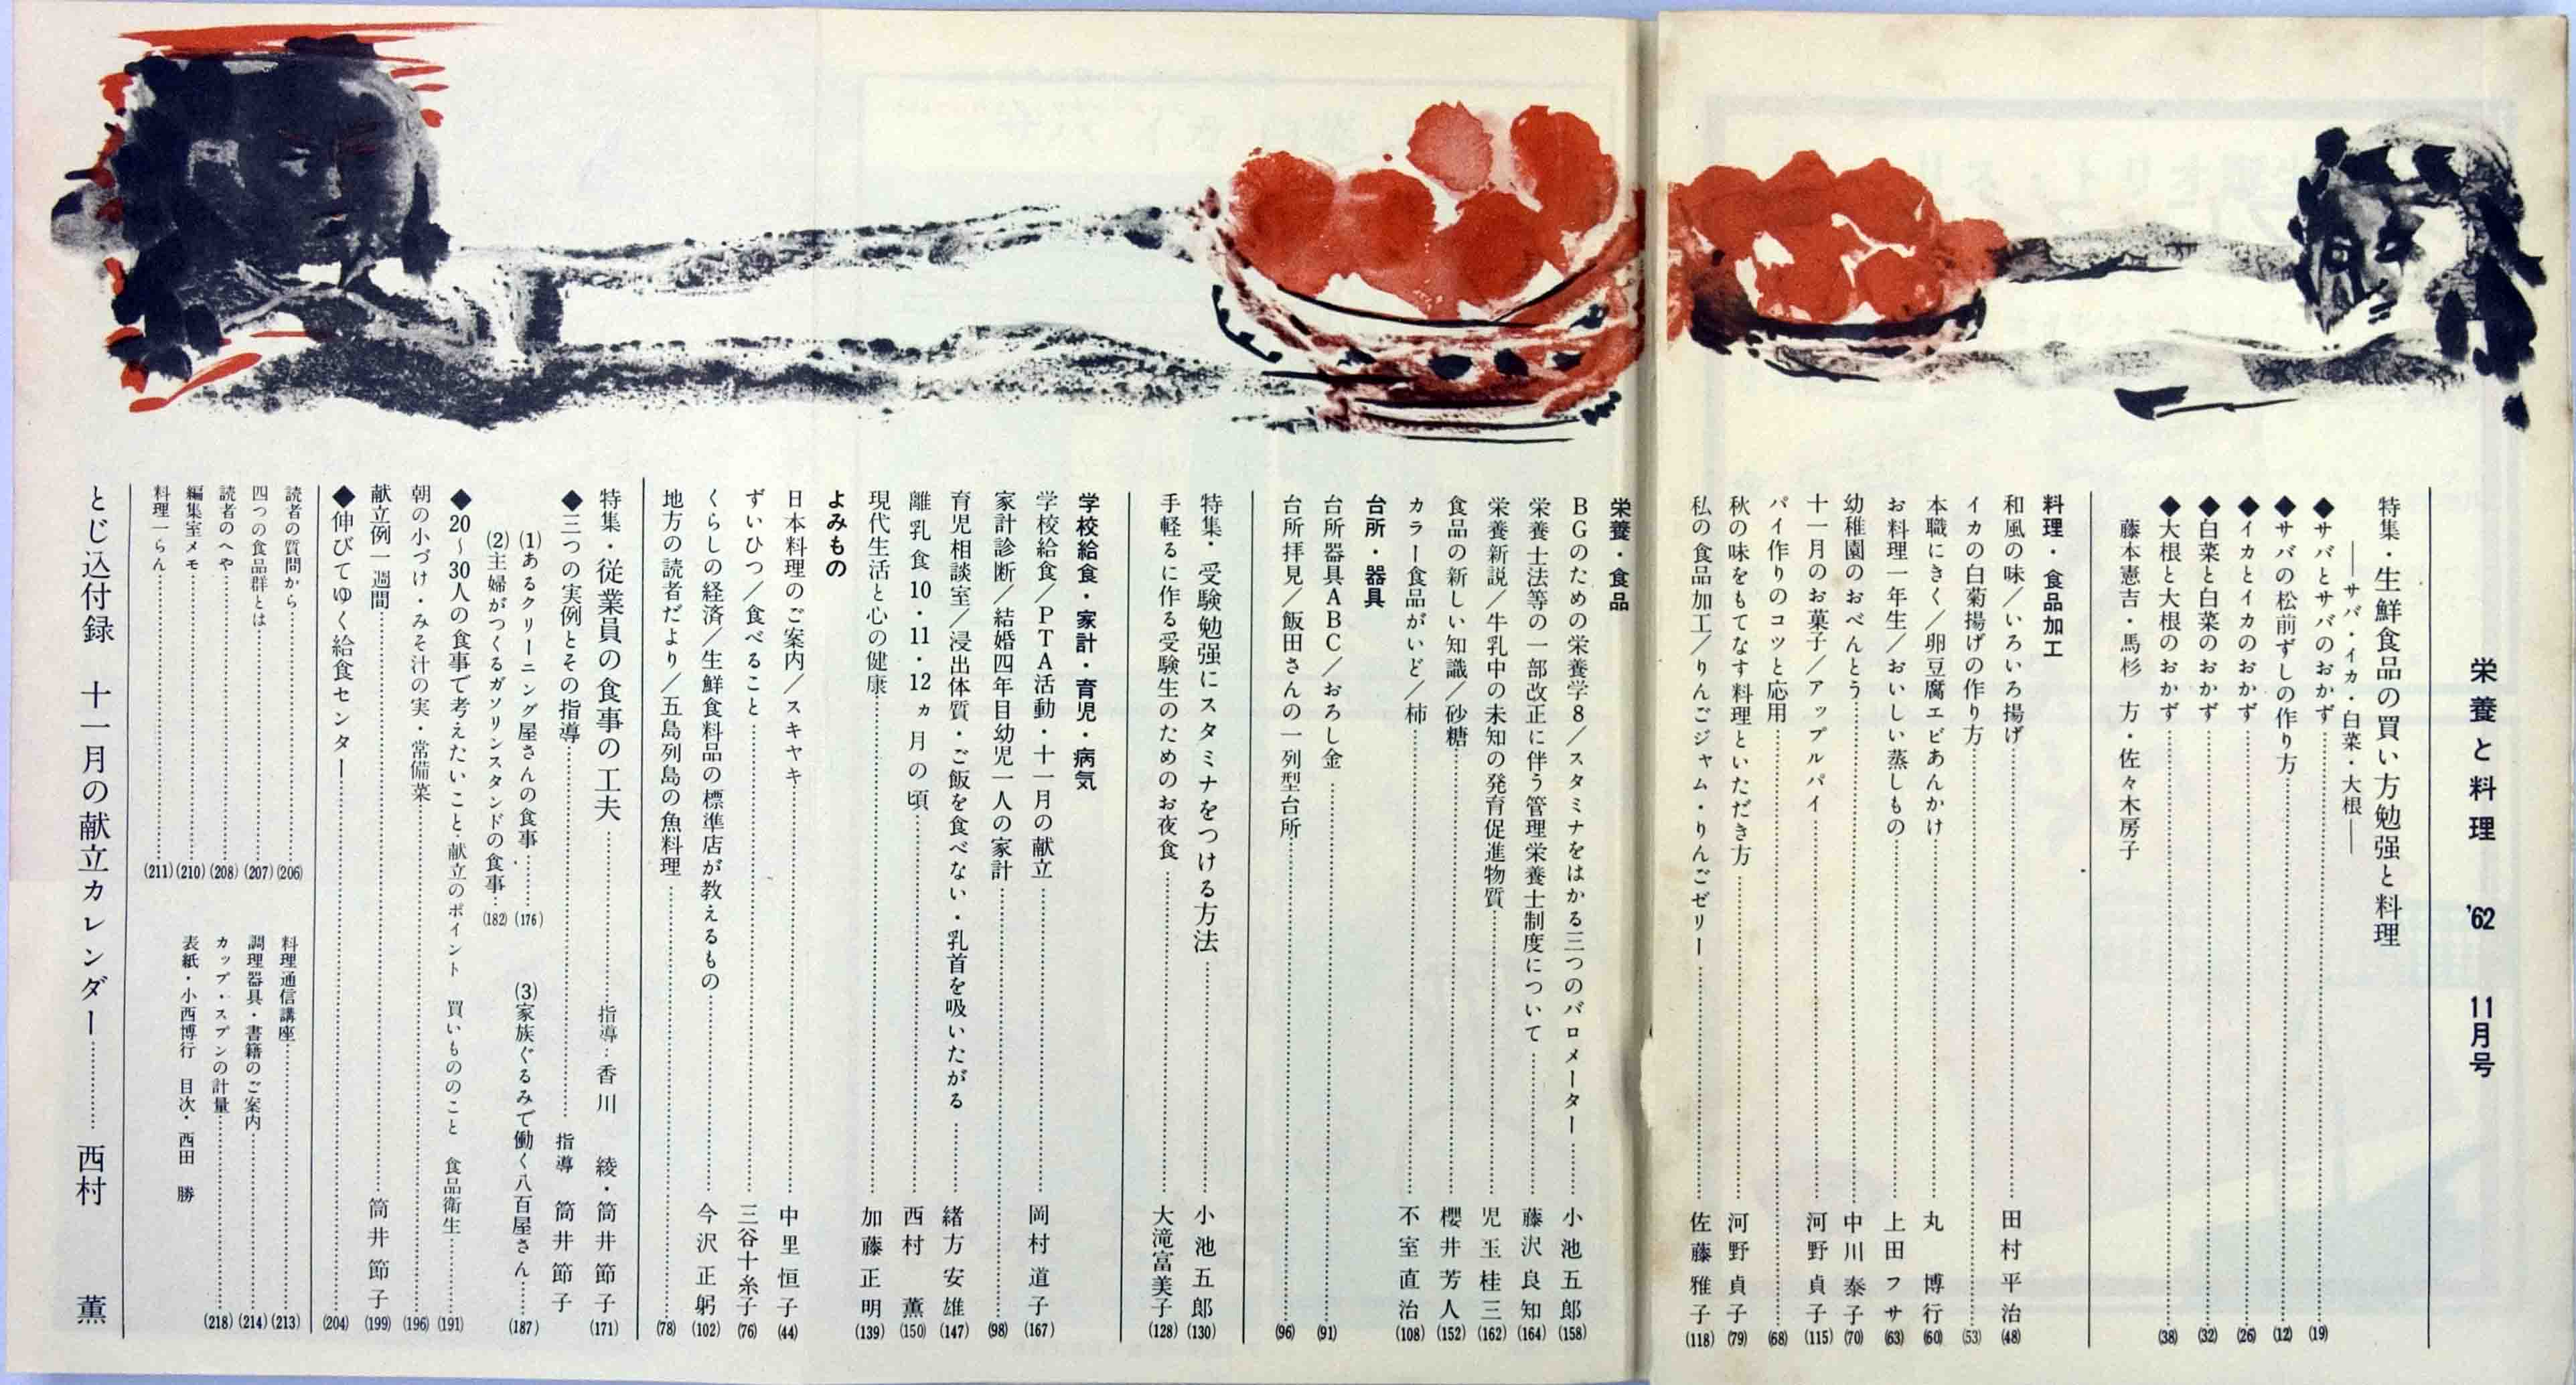 栄養と料理　'62　11月号
特集・生鮮食品の買い方勉強と料理
――サバ・イカ・白菜・大根――
◆サバとサバのおかず……(19)
◆サバの松前ずしの作り方……(12)
◆イカとイカのおかず……(26)
◆白菜と白菜のおかず……(32)
◆大根と大根のおかず……(38)
藤本憲吉・馬杉　方・佐々木房子
料理・食品加工
和風の味／いろいろ揚げ……田村平治(48)
イカの白菊揚げの作り方……(53)
本職にきく／卵豆腐エビあんかけ……丸　博行(60)
お料理一年生／おいしい蒸しもの……上田フサ(63)
幼稚園のおべんとう……中川泰子(70)
十一月のお菓子／アップルパイ……河野貞子(115)
パイ作りのコツと応用……(68)
秋の味をもてなす料理といただき方……河野貞子(79)
私の食品加工／りんごジャム・りんごゼリー……佐藤雅子(118)
栄養・食品
BGのための栄養学8／スタミナをはかる三つのバロメーター……小池五郎(158)
栄養士法等の一部改正に伴う管理栄養士制度について……藤沢良知(164)
栄養新説／牛乳中の未知の発育促進物質……児玉桂三(162)
食品の新しい知識／砂糖……櫻井芳人(152)
カラー食品がいど／柿……不室直治(108)
台所・器具
台所器具ABC／おろし金……(91)
台所拝見／飯田さんの一列型台所……(96)
特集・受験勉強にスタミナをつける方法……小池五郎(130)
手軽るに作る受験生のためのお夜食……大滝富美子(128)
学校給食・家計・育児・病気
学校給食／PTA活動・十一月の献立……岡村道子(167)
家計診断／結婚四年目幼児一人の家計……(98)
育児相談室／浸出体質・ご飯を食べない・乳首を吸いたがる……緒方安雄(147)
離乳食10・11・12ヵ月の頃……西村　薫(150)
現代生活と心の健康……加藤正明(139)
よみもの
日本料理のご案内／スキヤキ……中里恒子(44)
ずいひつ／食べること……三谷十糸子(76)
くらしの経済／生鮮食料品の標準店が教えるもの……今沢正躬(102)
地方の読者だより／五島列島の魚料理……(78)
特集・従業員の食事の工夫……指導・香川　綾・筒井節子(171)
◆三つの実例とその指導……指導　筒井節子
(1)あるクリーニング屋さんの食事……(176)
(2)主婦がつくるガソリンスタンドの食事……(182)
(3)家族ぐるみで働く八百屋さん……(187)
◆20〜30人の食事で考えたいこと・献立のポイント　買いもののこと　食品衛生……(191)
朝の小づけ・みそ汁の実・常備菜……(196)
献立例一週間……筒井節子(199)
◆伸びてゆく給食センター……(204)
読者の質問から……(206)
四つの食品群とは……(207)
読者のへや……(208)
編集室メモ……(210)
料理一らん……(211)
料理通信講座……(213)
調理器具・書籍のご案内……(214)
カップ・スプンの計量……(218)
表紙・小西博行　目次・西田　勝
とじ込付録　十一月の献立カレンダー……西村　薫